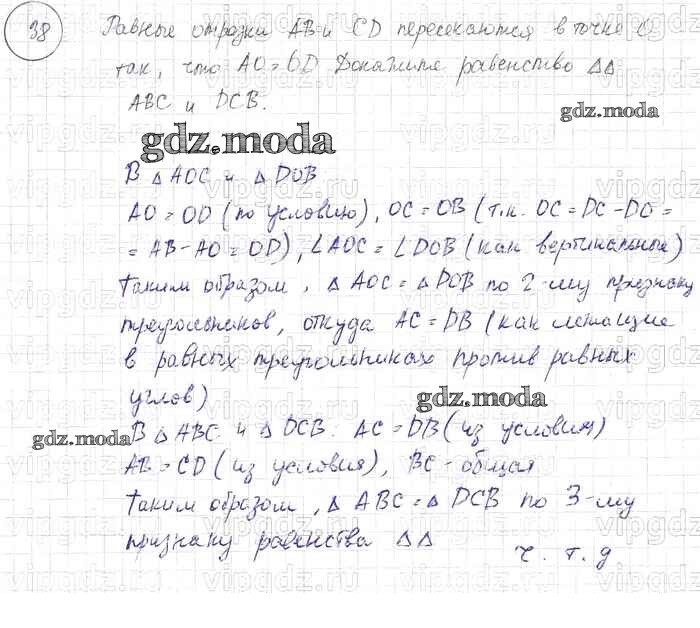 38 Равные отрезки AB и CD пересекаются в точке O
так, что AO = OD Докажите равенство ΔΔ
ABC и DCB.
gdz.moda
gdz.moda
В Δ AOC и Δ DOB
AO = OD (по условию), OC = OB (т.к. OC = DC - DO =
= AB - AO = OD), ∠AOC = ∠DOB (как вертикальные)
Таким образом, Δ AOC = Δ DOB по 2-му признаку
треугольников, откуда AC = DB (как лежащие
в равных треугольниках против равных
углов)
gdz.moda
gdz.moda
В Δ ABC и Δ DCB. AC = DB (из условия)
AB = CD (из условия), BC - общая
Таким образом, Δ ABC = Δ DCB по 3-му
признаку равенства ΔΔ
ч. т. д